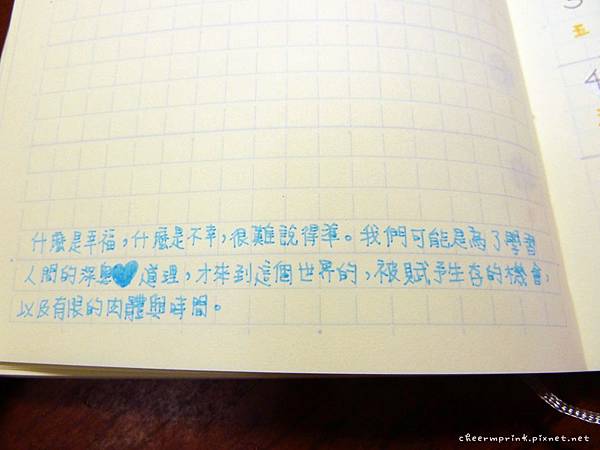 什麼是幸福，什麼是不幸，很難說得準。我們可能是為了學習
人間的深奧♥道理，才來到這個世界的，被賦予生存的機會，
以及有限的肉體與時間。
五
4
cheermprink.pixnet.net